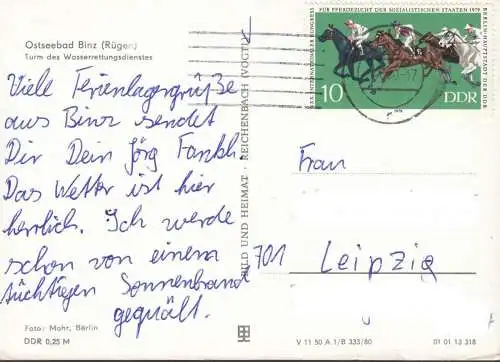 Ostseebad Binz (Rügen)
Turm des Wasserrettungsdienstes
Viele Ferienlagergrüße
aus Binz sendet
Dir Dein Jörg
Das Wetter ist hier
herrlich. Ich werde
schon von einem
tüchtigen Sonnenbrand
gequält.
Foto: Mohr, Berlin
DDR 0,25 M
BILD UND HEIMAT · REICHENBACH (VOGTL)
FÜR PFERDEZUCHT DER SOZIALISTISCHEN STAATEN 1979
BERLIN-HAUPTSTADT DER DDR
10
DDR
Frau
701 Leipzig
V 11 50 A 1/B 333/80
01 01 13 318